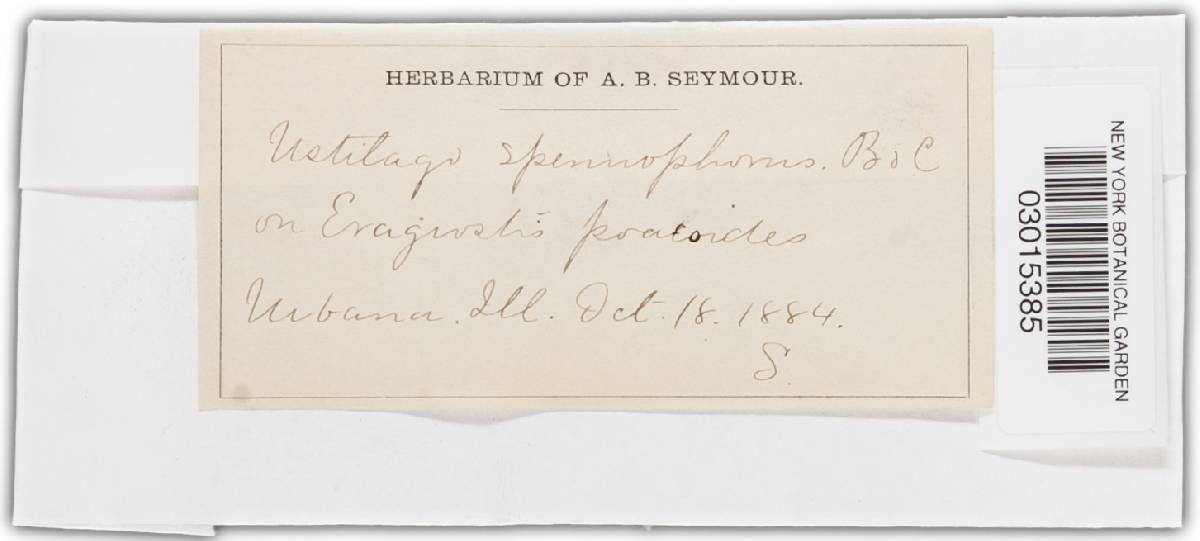 HERBARIUM OF A. B. SEYMOUR.
Ustilago spermophorus. B & C
on Eragrostis poaeoides
Urbana. Ill. Oct. 18. 1884.
S.
NEW YORK BOTANICAL GARDEN
03015385